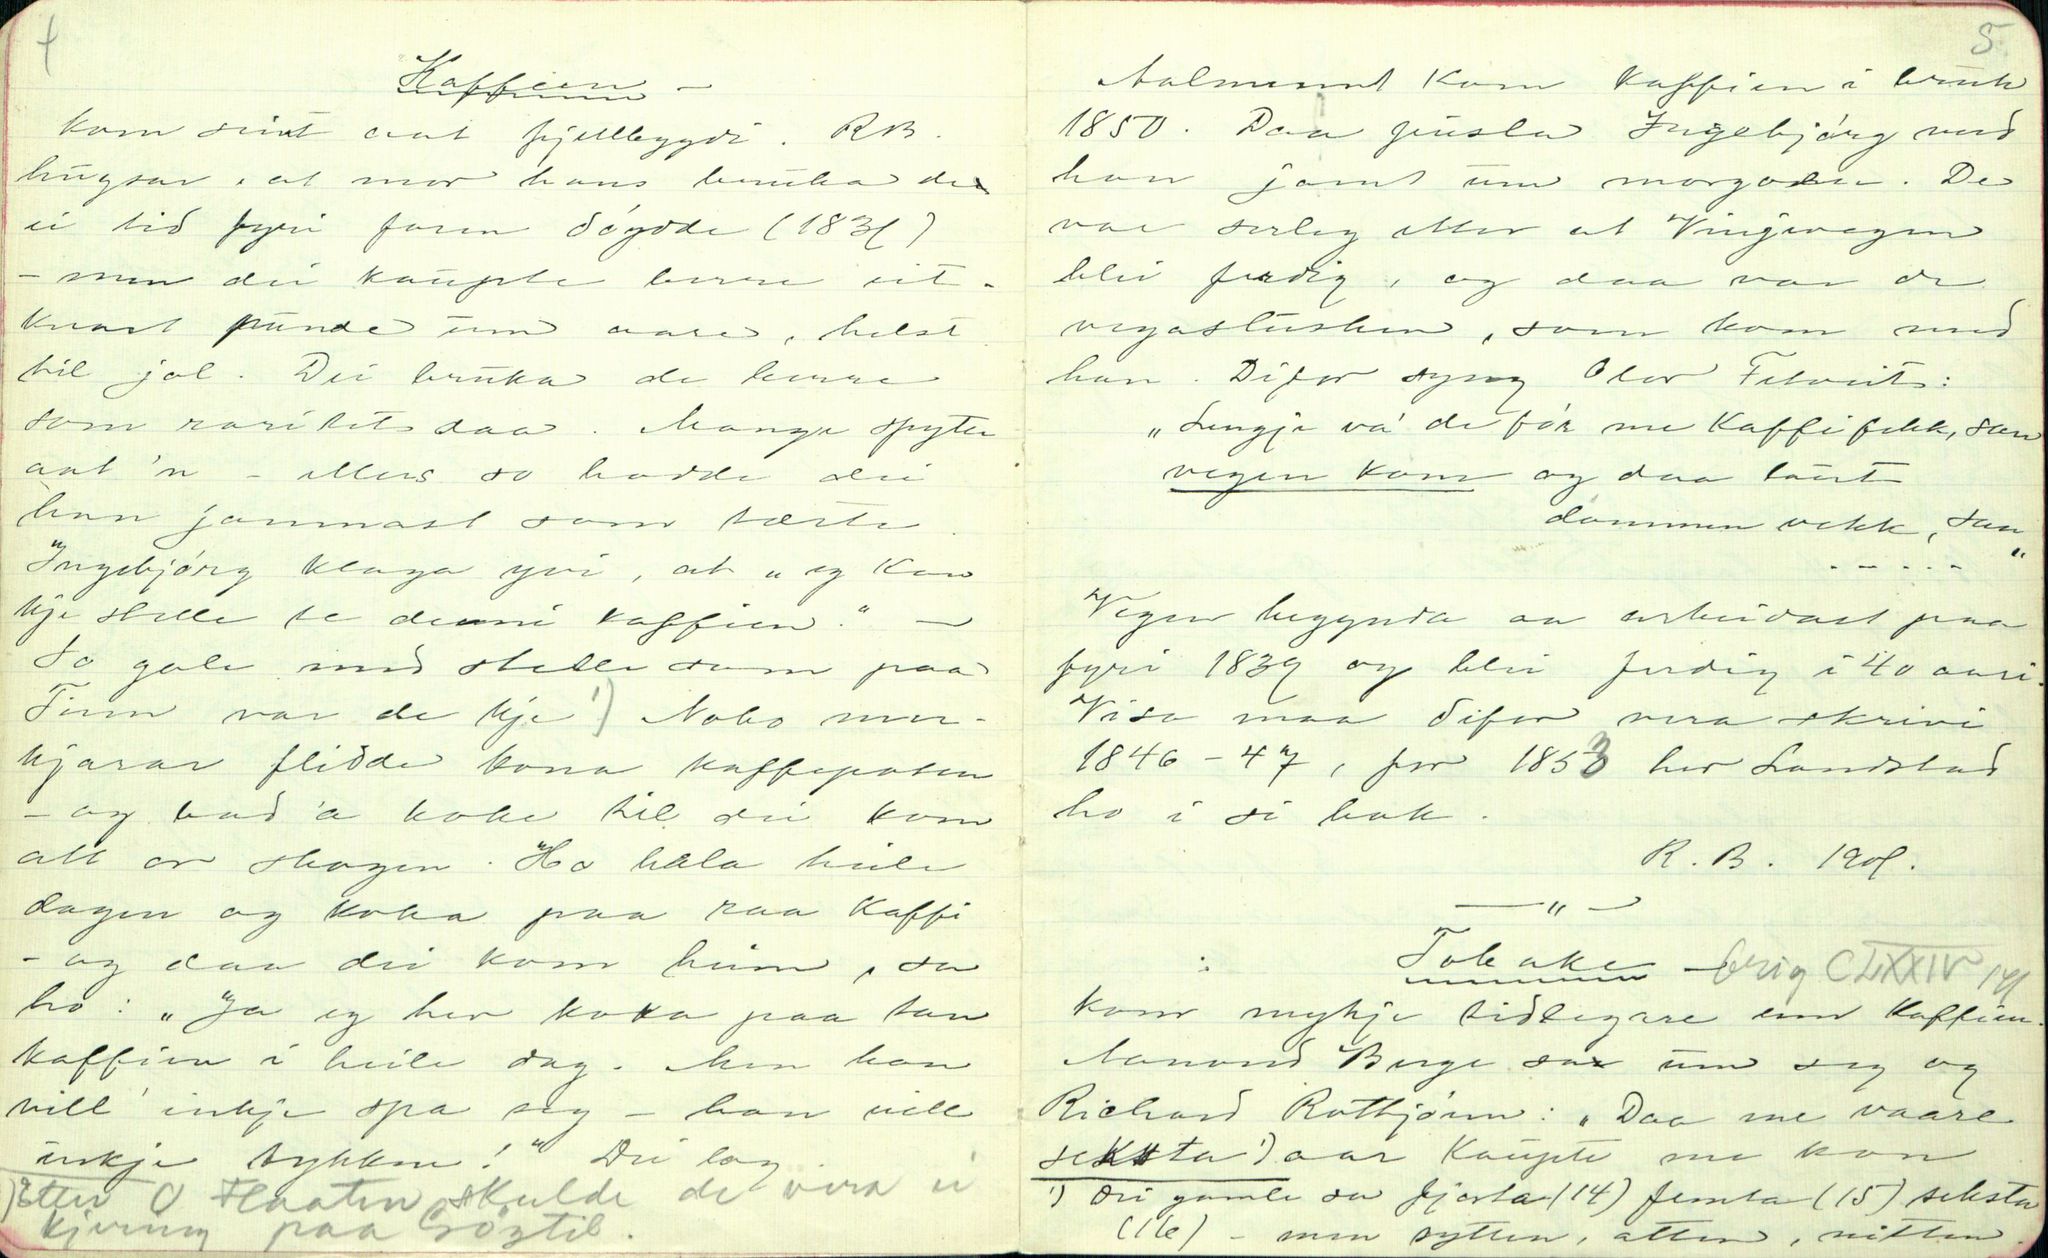 4
Kaffien –
kom seint aat fjellbygdi. R B.
hugsar, at mor hans bruka de
ei tid fyri faren döydde (1834)
– men dei kaupte berre eit-
kvart punde um aare, helst
til jol. Dei bruka de berre
som raritet daa. Mange spytte
aat 'n – ellers so hadde dei
han jammast som tæste.
Ingebjörg klaga yvi, at „eg kan
kje stelle te denni kaffien." –
So gale med stelle som paa
Tinn var de kje 1) Noko mor-
kjarar flidde kona kaffepoten
– og bad 'a koke til dei kom
att or skogen. Ho hala heile
dagen og koka paa raa kaffi
– og daa dei kom heim, sa
ho: „Ja eg her koka paa tan
kaffien i heile dag. Men han
vill' inkje spa seg – han vill
inkje tykkne!" Dei log.
1) Etter O Flaaten skulde de vera ei
kjering paa Göytil.
5
Aalment kom kaffien i bruk
1850. Daa pusla Ingebjörg med
han jamt um morgonen. De
var serleg etter at Vinjevegen
blei ferdig, og daa var de
vegaslusken, som kom med
han. Difor syng Olav Felveit:
„Lengje va' de för me Kaffi fekk, san
vegen kom og daa taut
dommen vekk, san
- - - - - "
Vegen begynda an arbeidast paa
fyri 1839 og blei ferdig i 40 aari.
Visa maa difor vera skrivi
1846 – 47, for 1853 her Landstad
ho i si bok.
R. B. 1909.
— " —
: Tobake – Orig CLXXIV 141
kom mykje tidlegare enn Kaffien.
Aamund Berge sa um seg og
Richard Rotbjönn: „Daa me vaare
seksta 1) aar kaupte me kon
1) Dei gamle sa fjorta (14) femta (15) seksta
(16) – men sytten, atten, nitten.